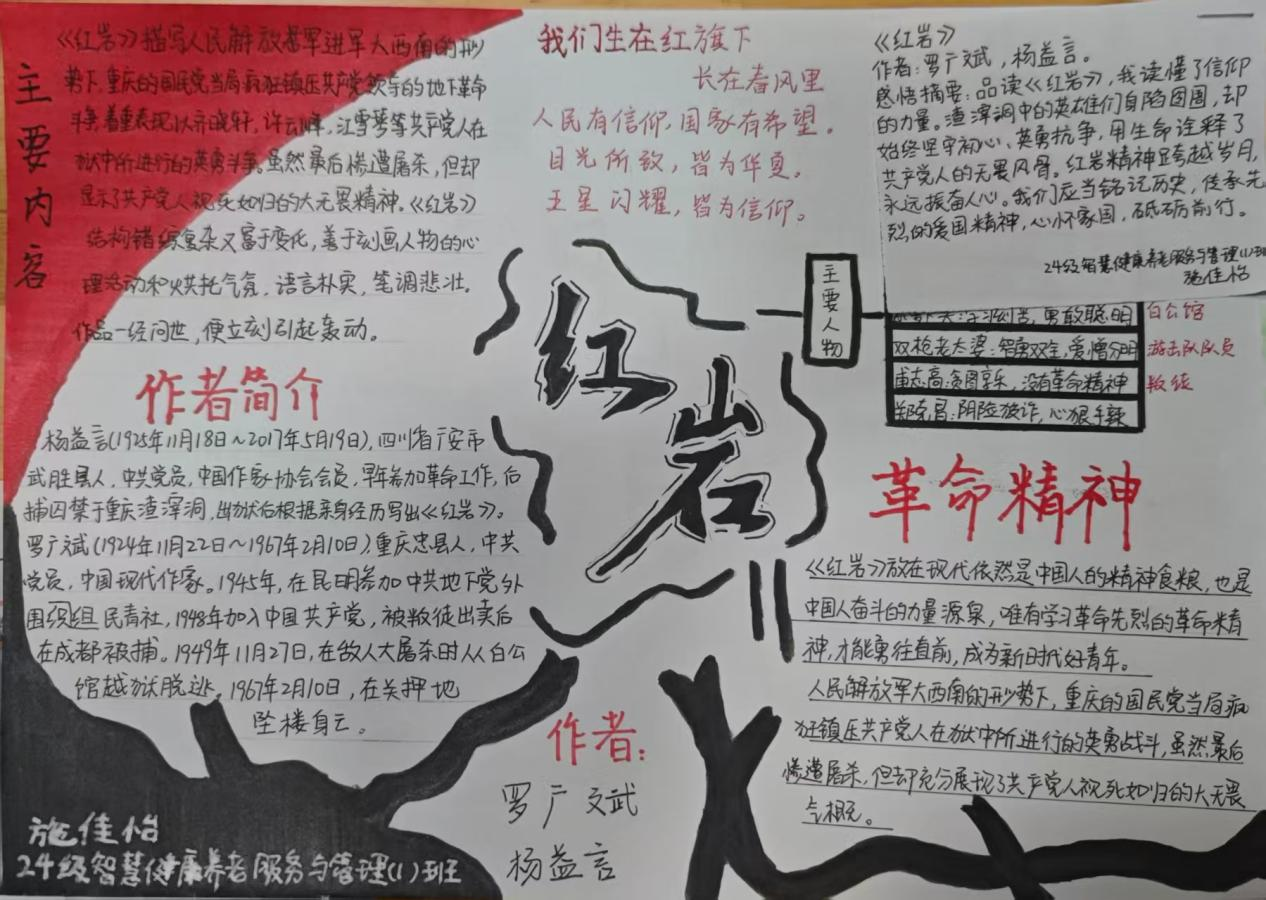 主要内容
《红岩》描写人民解放军进军大西南的形
势下,重庆的国民党当局疯狂镇压共产党领导的地下革命
斗争,着重表现以齐晓轩,许云峰,江雪琴等共产党人在
狱中所进行的英勇斗争。虽然最后惨遭屠杀,但却
显示了共产党人视死如归的大无畏精神。《红岩》
结构错综复杂又富于变化,善于刻画人物的心
理活动和烘托气氛,语言朴实,笔调悲壮。
作品一经问世,便立刻引起轰动。
作者简介
杨益言(1925年11月18日~2017年5月19日),四川省广安市
武胜县人,中共党员,中国作家协会会员,早年参加革命工作,后
捕囚禁于重庆渣滓洞,出狱后根据亲身经历写出《红岩》。
罗广斌(1924年11月22日~1967年2月10日),重庆忠县人,中共
党员,中国现代作家。1945年,在昆明参加中共地下党外
围织组民青社,1948年加入中国共产党,被叛徒出卖后
在成都被捕。1949年11月27日,在敌人大屠杀时从白公
馆越狱脱逃。1967年2月10日,在关押地
坠楼身亡。
施佳怡
24级智慧健康养老服务与管理(1)班
我们生在红旗下
长在春风里
人民有信仰,国家有希望。
目光所致,皆为华夏。
五星闪耀,皆为信仰。
红岩
作者:
罗广文武
杨益言
《红岩》
作者:罗广斌,杨益言。
感悟摘要:品读《红岩》,我读懂了信仰
的力量。渣滓洞中的英雄们身陷囹圄,却
始终坚守初心、英勇抗争,用生命诠释了
共产党人的无畏风骨。红岩精神跨越岁月,
永远振奋人心。我们应当铭记历史,传承先
烈的爱国精神,心怀家国,砥砺前行。
24级智慧健康养老服务与管理(1)班
施佳怡
主要人物
勇敢聪明 白公馆
双枪老太婆:智勇双全,爱憎分明 游击队队员
甫志高:贪图享乐,没有革命精神 叛徒
郑克昌:阴险狡诈,心狠手辣
革命精神
《红岩》放在现代依然是中国人的精神食粮,也是
中国人奋斗的力量源泉,唯有学习革命先烈的革命精
神,才能勇往直前,成为新时代好青年。
人民解放军大西南的形势下,重庆的国民党当局疯
狂镇压共产党人在狱中所进行的英勇战斗,虽然最后
惨遭屠杀,但却充分展现了共产党人视死如归的大无畏
气概。